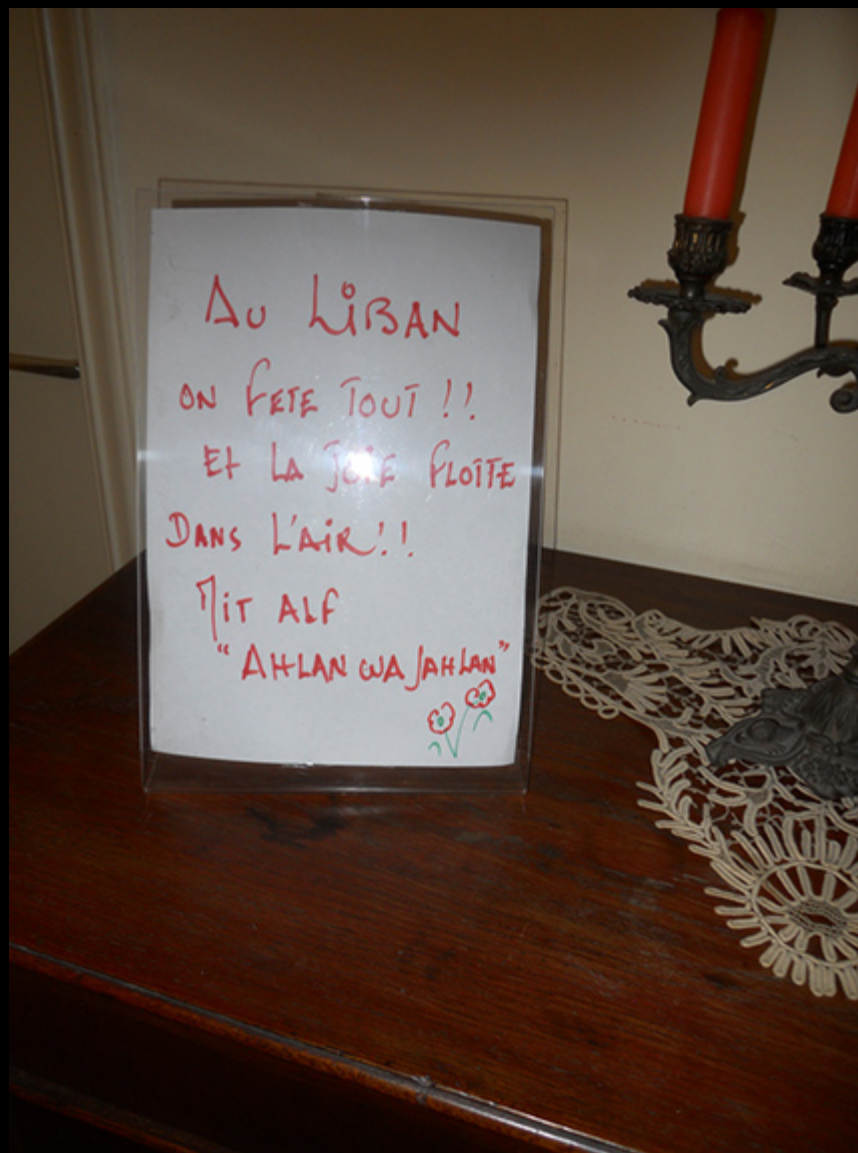 AU LiBAN
ON FETE TOUT !!
Et LA JOIE FLOTTE
DANS L'AiR!!
MiT ALF
"AHLAN WA SAHLAN"